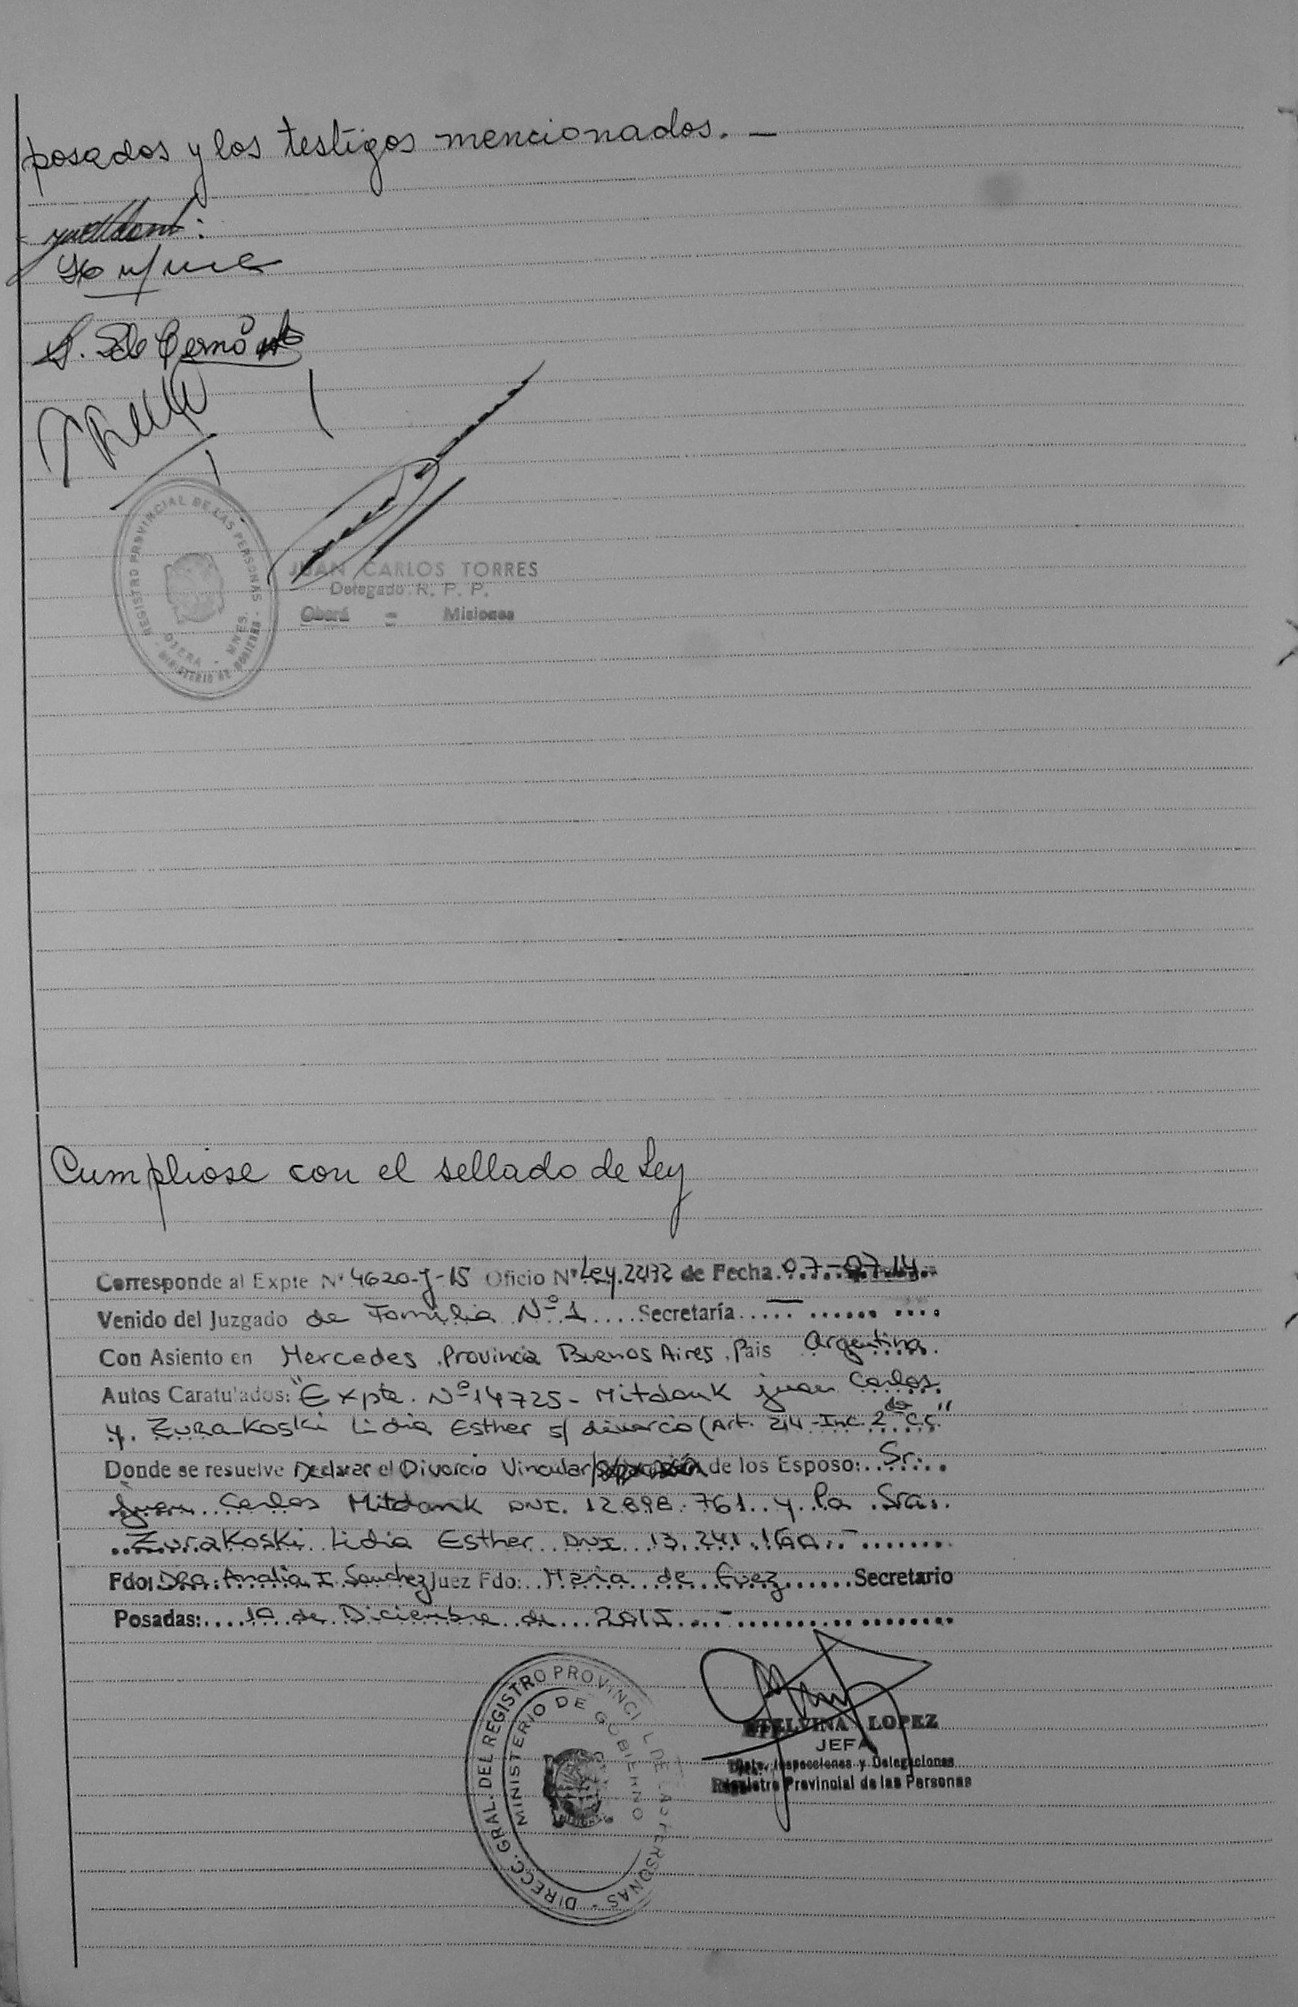 posados y los testigos mencionados. —
REGISTRO PROVINCIAL DE LAS PERSONAS
OBERA - MNES.
MINISTERIO DE GOBIERNO
JUAN CARLOS TORRES
Delegado R. P. P.
Oberá - Misiones
Cumpliose con el sellado de Ley
Corresponde al Expte Nº 4620-J-15 Oficio Nº Ley.22172 de Fecha 07-07-14
Venido del Juzgado de Familia Nº 1 .... Secretaría ..... —
Con Asiento en Mercedes, Provincia Buenos Aires, Pais Argentina.
Autos Caratulados: "Expte. Nº 14725 - Mitdank Juan Carlos
y. Zurakoski Lidia Esther s/ divorcio (Art. 214 - Inc. 2do C.C."
Donde se resuelve Declarar el Divorcio Vincular/ de los Esposo: Sr.
Juan Carlos Mitdank DNI. 12.898.761 y la Sra.
Zurakoski Lidia Esther DNI 13.241.
Fdo: Dra. Analia I. Sanchez Juez Fdo: Maria de Secretario
Posadas: 10 de Diciembre de 2015 —
DIRECC. GRAL. DEL REGISTRO PROVINCIAL DE LAS PERSONAS
MINISTERIO DE GOBIERNO
ETELVINA LOPEZ
JEFA
Dpto. Inspecciones y Delegaciones
Registro Provincial de las Personas